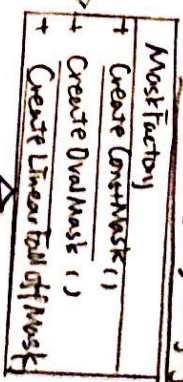 MaskFactory
+ Create ConstMask ()
+ Create OvalMask ()
+ Create Linear Fall Off Mask